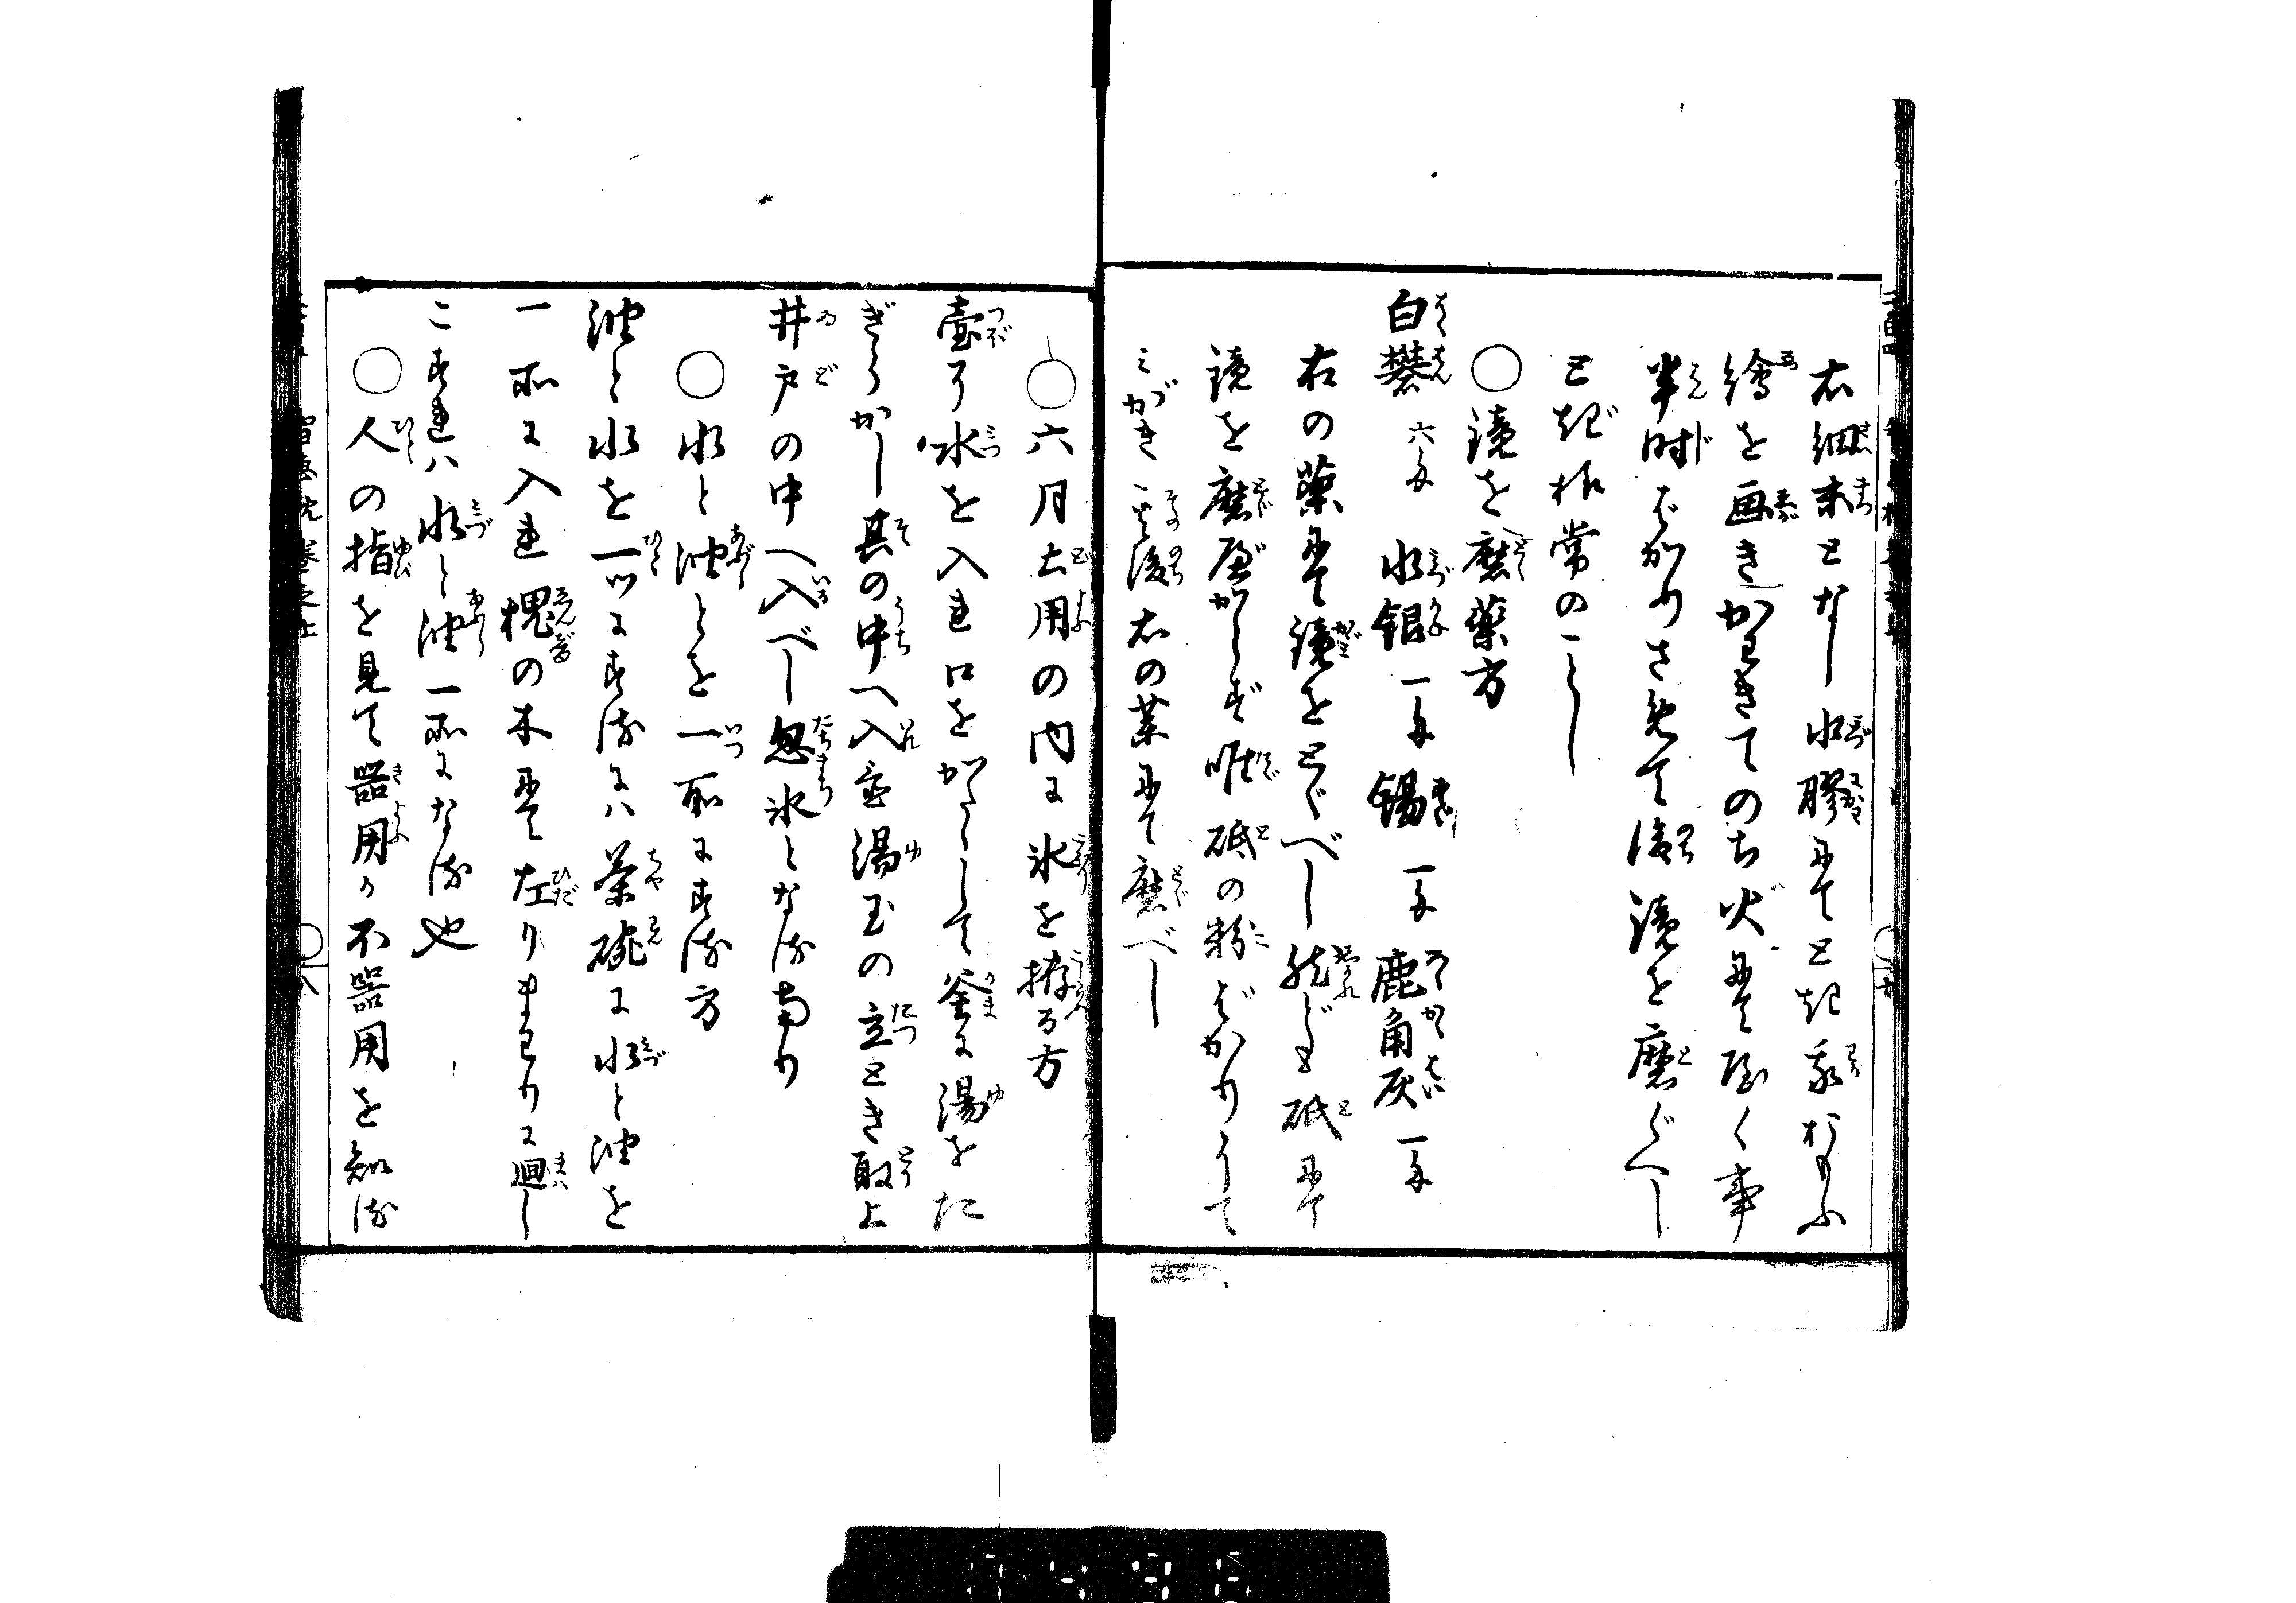 右細末となし水膠にてとき我おもふ
絵を画きかわきてのち火にて焼く事
半時ばかりさめて後鏡を磨ぐべし
とぎ様常のごとし
○鏡を磨薬方
白礬 六匁 水銀 一匁 錫 一匁 鹿角灰 一匁
右の薬にて鏡をとぐべし然ども砥にて
鏡を磨べからず唯砥の粉ばかりにて
みがき其後右の薬にて磨べし
○六月土用の内に氷を拵る方
壷に水を入れ口をからして釜に湯をた
ぎらかし其の中へ入置湯玉の立とき取上
井戸の中へ入べし忽氷となる なり
○水と油とを一所にする方
油と水を一ツにするには茶碗に水と油を
一所に入れ槐の木にて左りまわりに廻し
こすれは水と油一所になる也
○人の指を見て器用か不器用を知る